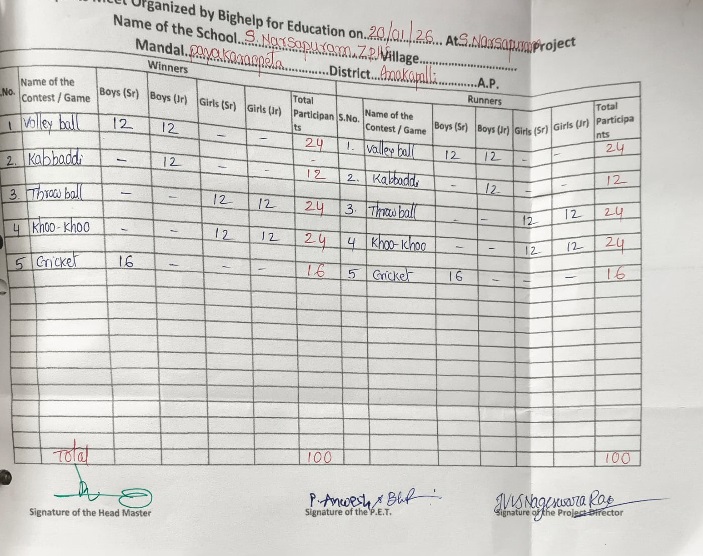 Meet Organized by Bighelp for Education on 20/01/26 At S. Narsapuram Project
Name of the School S. Narsapuram, Z.P. Village
Mandal District Anakapalli A.P.
Winners Runners
No. Name of the Contest / Game Boys (Sr) Boys (Jr) Girls (Sr) Girls (Jr) Total Participants S.No. Name of the Contest / Game Boys (Sr) Boys (Jr) Girls (Sr) Girls (Jr) Total Participants
1 Volley ball 12 12 - - 24 1. Volley ball 12 12 - - 24
2. Kabbaddi - 12 - - 12 2. Kabbaddi - 12 - - 12
3. Throw ball - - 12 12 24 3. Throw ball - - 12 12 24
4 Khoo-Khoo - - 12 12 24 4 Khoo-Khoo - - 12 12 24
5 Cricket 16 - - - 16 5 Cricket 16 - - - 16
Total 100 100
P. Anwesh JVVS Nageswara Rao
Signature of the Head Master Signature of the P.E.T. Signature of the Project Director